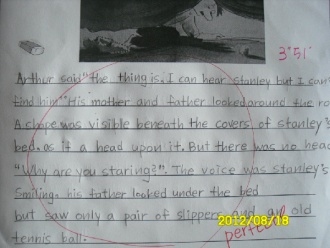 3'51"
Arthur said "the thing is. I can hear stanley but I can
find him" His mother and father looked around the ro
A shape was visible beneath the covers of stanley's
bed. as if a head upon it. But there was no head
"Why are you staring?". The voice was stanley's
Smiling. his father looked under the bed
but saw only a pair of slippers and an old
tennis ball.
perfect
2012/08/18